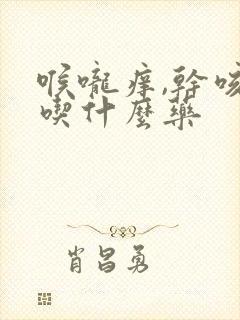 喉嚨痒,幹咳
喫什麼藥
肖昌勇